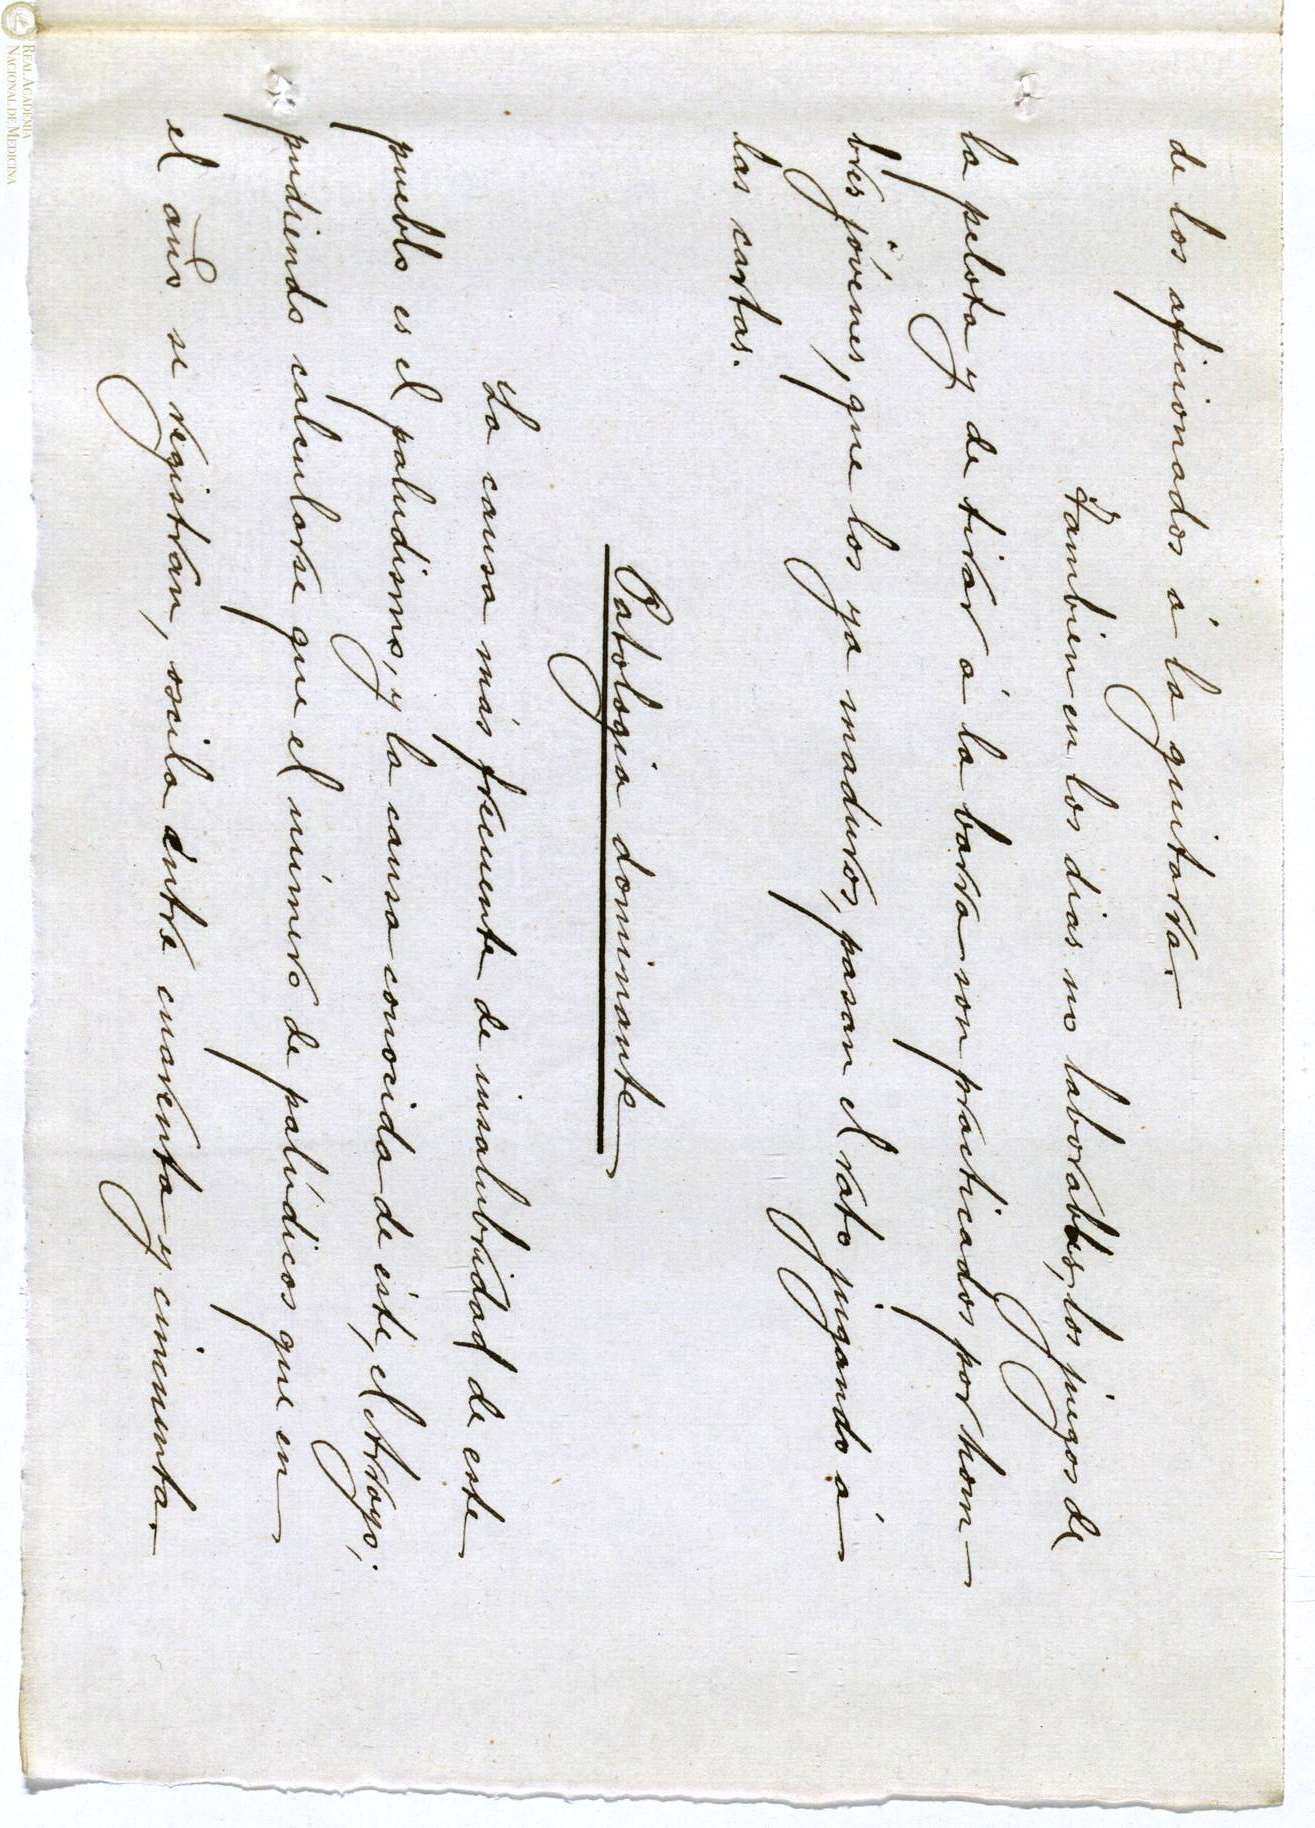 de los aficionados á la guitarra.
Tambien en los dias no laborables, los juegos de
la pelota y de tirar á la barra son practicados por hom-
bres jóvenes, que los ya maduros, pasan el rato jugando á
las cartas.
Patologia dominante
La causa más frecuente de insalubridad de este
pueblo es el paludismo, y la causa conocida de éste, el Arroyo;
pudiendo calcularse que el número de palúdicos que en
el año se registran, oscila entre cuarenta y cincuenta.
REAL ACADEMIA
NACIONAL DE MEDICINA